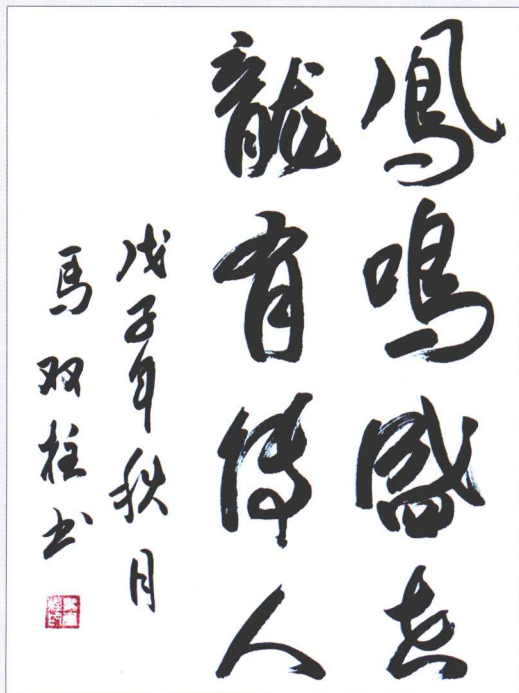 鳳鳴盛世
龍有傳人
戊子年秋月
馬双柱书